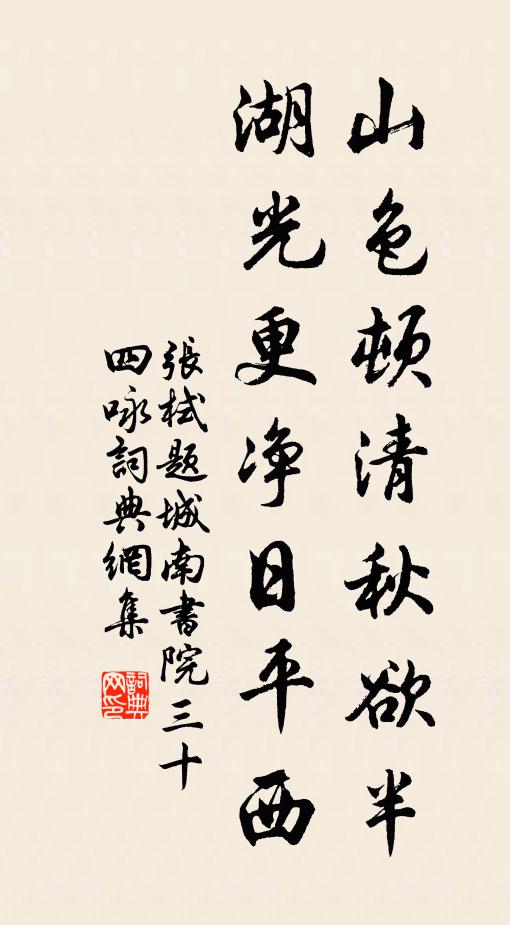 山色頓清秋欲半
湖光更净日平西
張栻題城南書院三十
四咏詞典網集
詞典網印